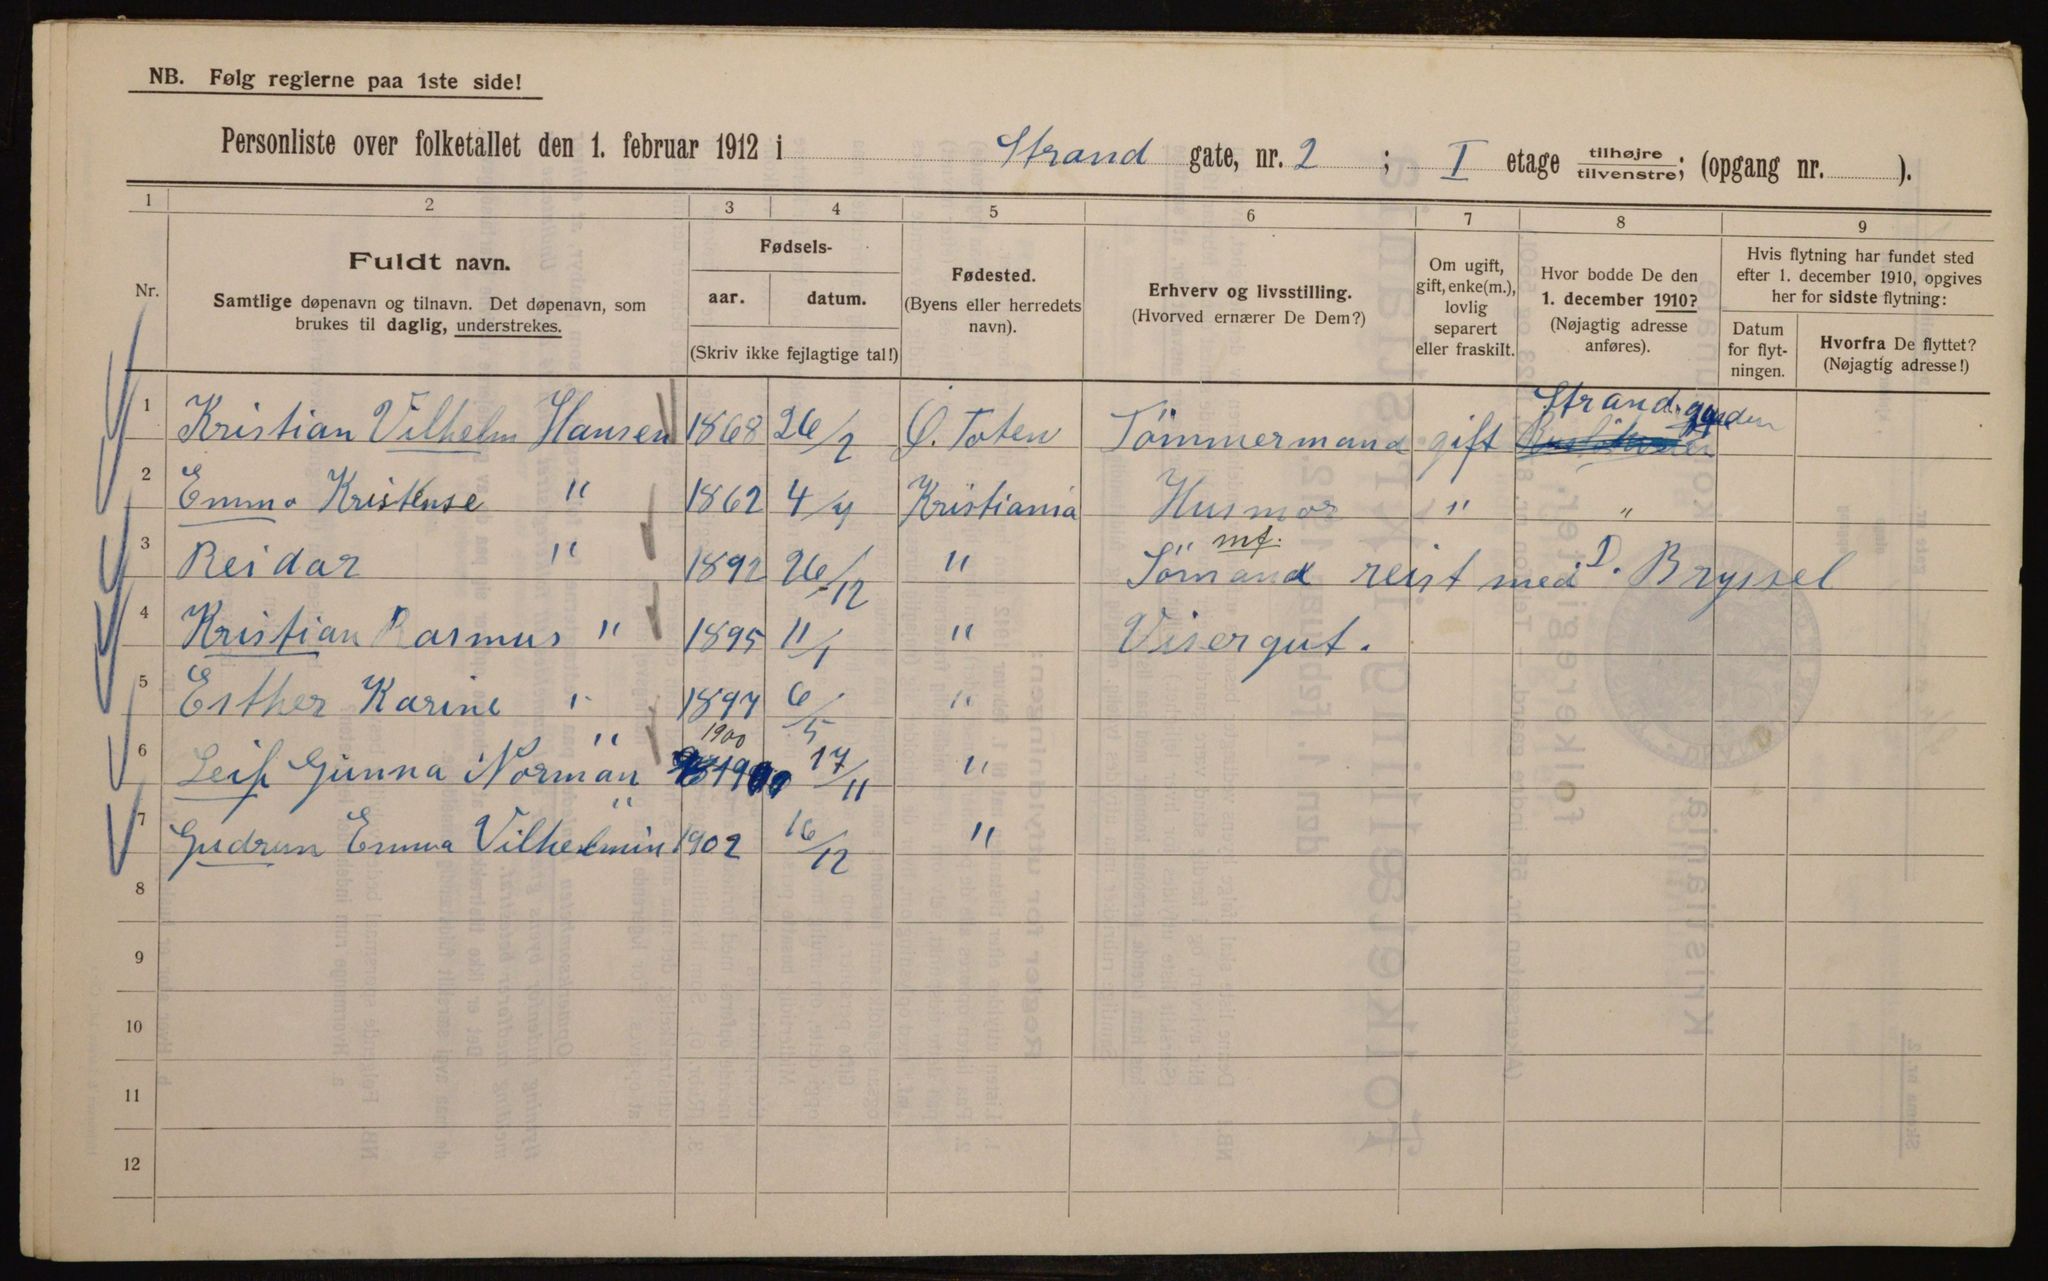 NB. Følg reglerne paa 1ste side!
Personliste over folketallet den 1. februar 1912 i Strand gate, nr. 2 ; I etage tilhøjre/tilvenstre; (opgang nr. ).
1 2 3 4 5 6 7 8 9
Nr.
Fuldt navn.
Samtlige døpenavn og tilnavn. Det døpenavn, som
brukes til daglig, understrekes.
Fødsels-
aar. datum.
(Skriv ikke fejlagtige tal!)
Fødested.
(Byens eller herredets
navn).
Erhverv og livsstilling.
(Hvorved ernærer De Dem?)
Om ugift,
gift, enke(m.),
lovlig
separert
eller fraskilt.
Hvor bodde De den
1. december 1910?
(Nøjagtig adresse
anføres).
Hvis flytning har fundet sted
efter 1. december 1910, opgives
her for sidste flytning:
Datum
for flyt-
ningen.
Hvorfra De flyttet?
(Nøjagtig adresse!)
Strand. gaden
1 Kristian Vilhelm Hansen 1868 26/2 Ö. Toten Tömmermand gift
2 Emma Kristense " 1862 4/4 Kristiania Husmor " "
mf.
3 Reidar " 1892 26/12 " Sömand reist med D. Bryssel
4 Kristian Rasmus " 1895 11/1 " Visergut.
5 Esther Karine " 1897 6/5 "
1900
6 Leif Gunna Norman " 17/11 "
7 Gudrun Emma Vilhelmin " 1902 16/12 "
8
9
10
11
12